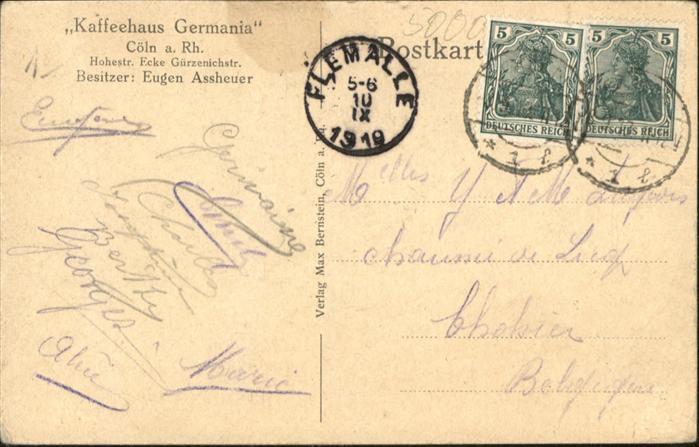 „Kaffeehaus Germania"
Cöln a. Rh.
Hohestr. Ecke Gürzenichstr.
Besitzer: Eugen Assheuer
Germaine
Charles
Berthy
Georges
Marie
Verlag Max Bernstein, Cöln a.
5000
Postkart
FLÉMALLE
5-6
10
IX
1919
5 5
DEUTSCHES REICH
5 5
DEUTSCHES REICH
* 1 f.
* 1 f.
Melles Y M
Chaussée de Liège
Chokier
Belgique